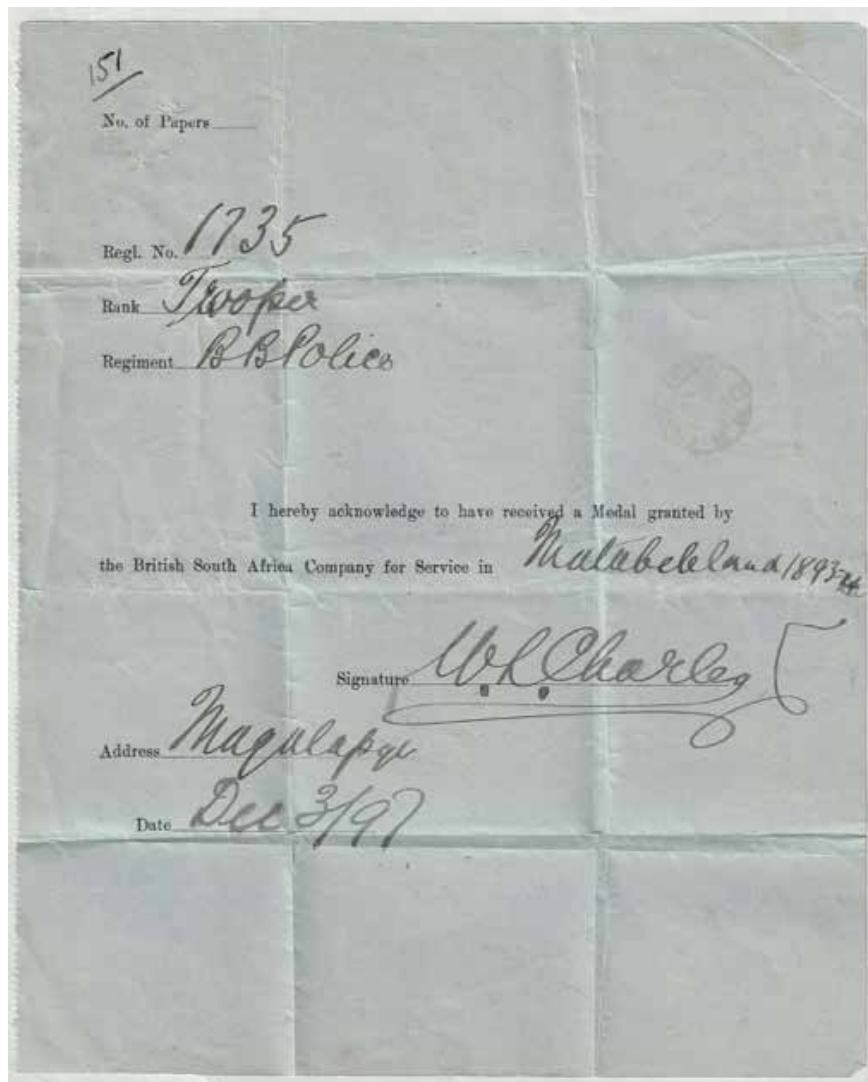 151
No. of Papers
Regl. No. 1735
Rank Trooper
Regiment B B Police
I hereby acknowledge to have received a Medal granted by
the British South Africa Company for Service in Matabeleland 1893
Signature W. L. Charles
Address Magalapye
Date Dec 3/97